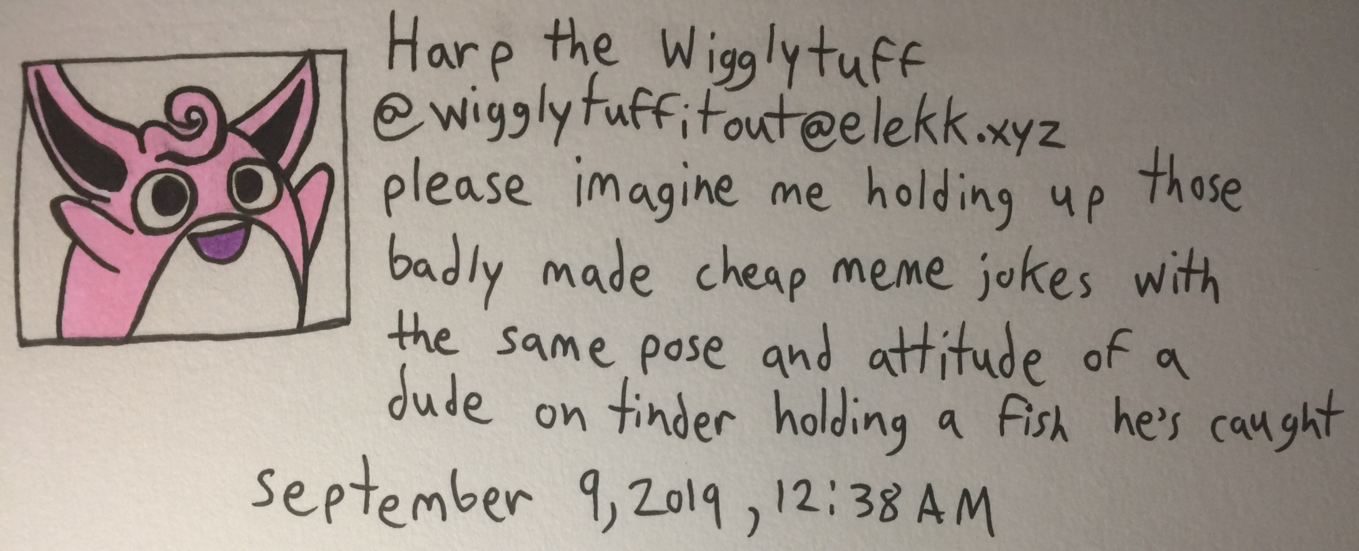 Harp the Wigglytuff
@wigglytuffitout@elekk.xyz
please imagine me holding up those
badly made cheap meme jokes with
the same pose and attitude of a
dude on tinder holding a fish he's caught
september 9, 2019, 12:38 AM